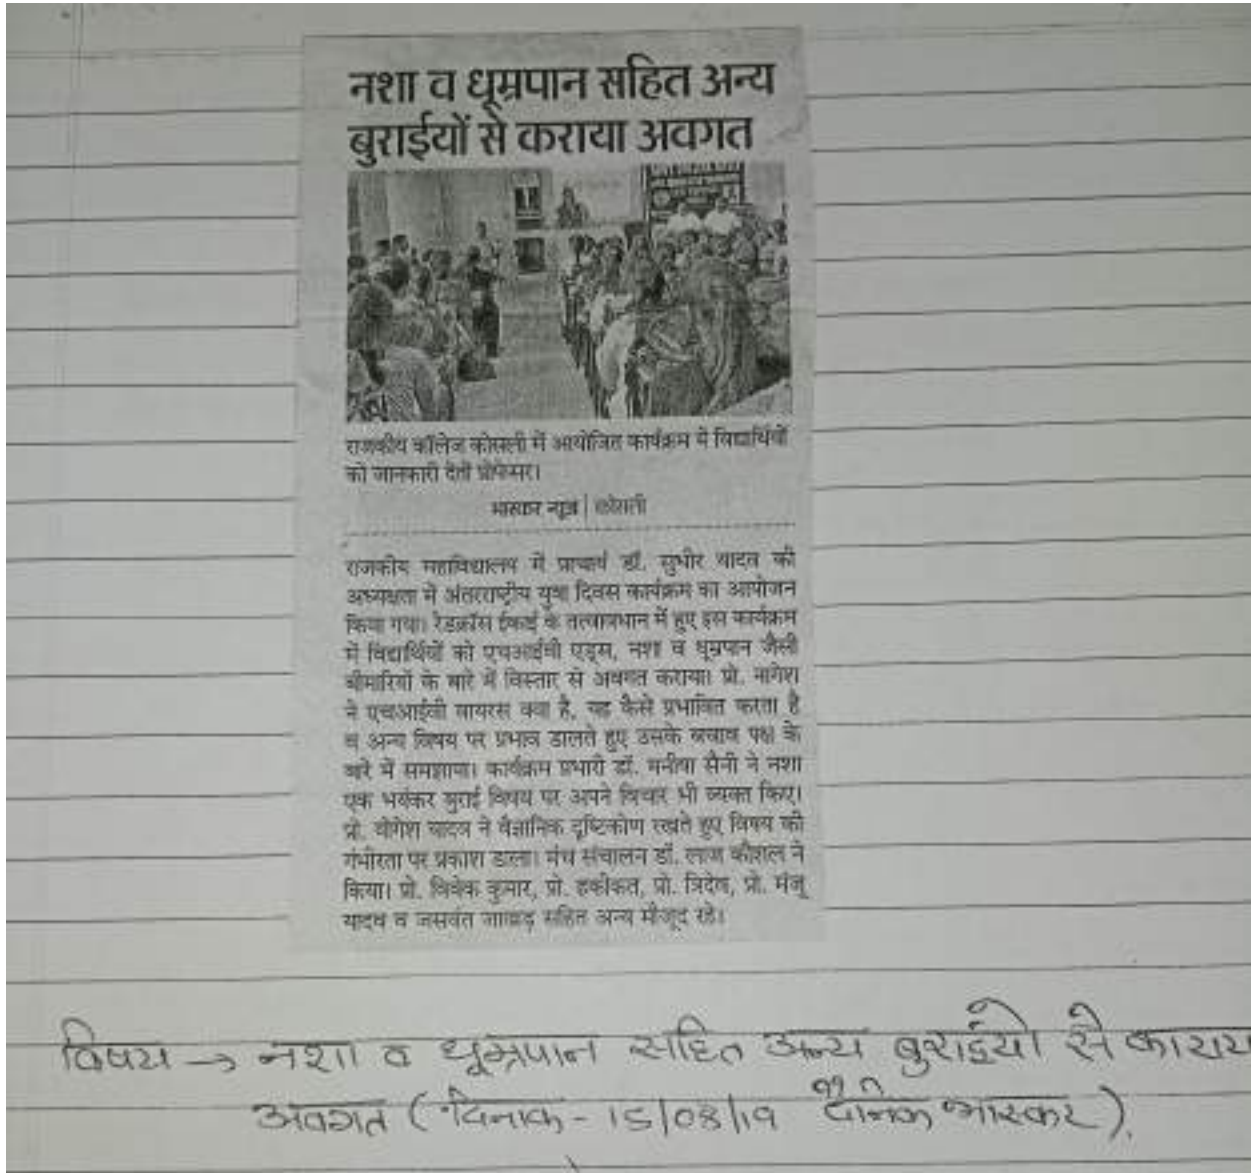 नशा व धूम्रपान सहित अन्य
बुराईयों से कराया अवगत
राजकीय कॉलेज कोसली में आयोजित कार्यक्रम में विद्यार्थियों
को जानकारी देतीं प्रोफेसर।
भास्कर न्यूज | कोसली
राजकीय महाविद्यालय में प्राचार्य डॉ. सुधीर यादव की
अध्यक्षता में अंतरराष्ट्रीय युवा दिवस कार्यक्रम का आयोजन
किया गया। रैडक्रॉस ईकाई के तत्वावधान में हुए इस कार्यक्रम
में विद्यार्थियों को एचआईवी एड्स, नशा व धूम्रपान जैसी
बीमारियों के बारे में विस्तार से अवगत कराया। प्रो. नागेश
ने एचआईवी वायरस क्या है, यह कैसे प्रभावित करता है
व अन्य विषय पर प्रभाव डालते हुए उसके बचाव पक्ष के
बारे में समझाया। कार्यक्रम प्रभारी डॉ. मनीषा सैनी ने नशा
एक भयंकर बुराई विषय पर अपने विचार भी व्यक्त किए।
प्रो. योगेश यादव ने वैज्ञानिक दृष्टिकोण रखते हुए विषय की
गंभीरता पर प्रकाश डाला। मंच संचालन डॉ. कौशल ने
किया। प्रो. विवेक कुमार, प्रो. हकीकत, प्रो. त्रिदेव, प्रो. मंजू
यादव व जसवंत जाखड़ सहित अन्य मौजूद रहे।
विषय → नशा व धूम्रपान सहित अन्य बुराईयो से काराय
अवगत (दिनाक - /19 दैनिक भास्कर).